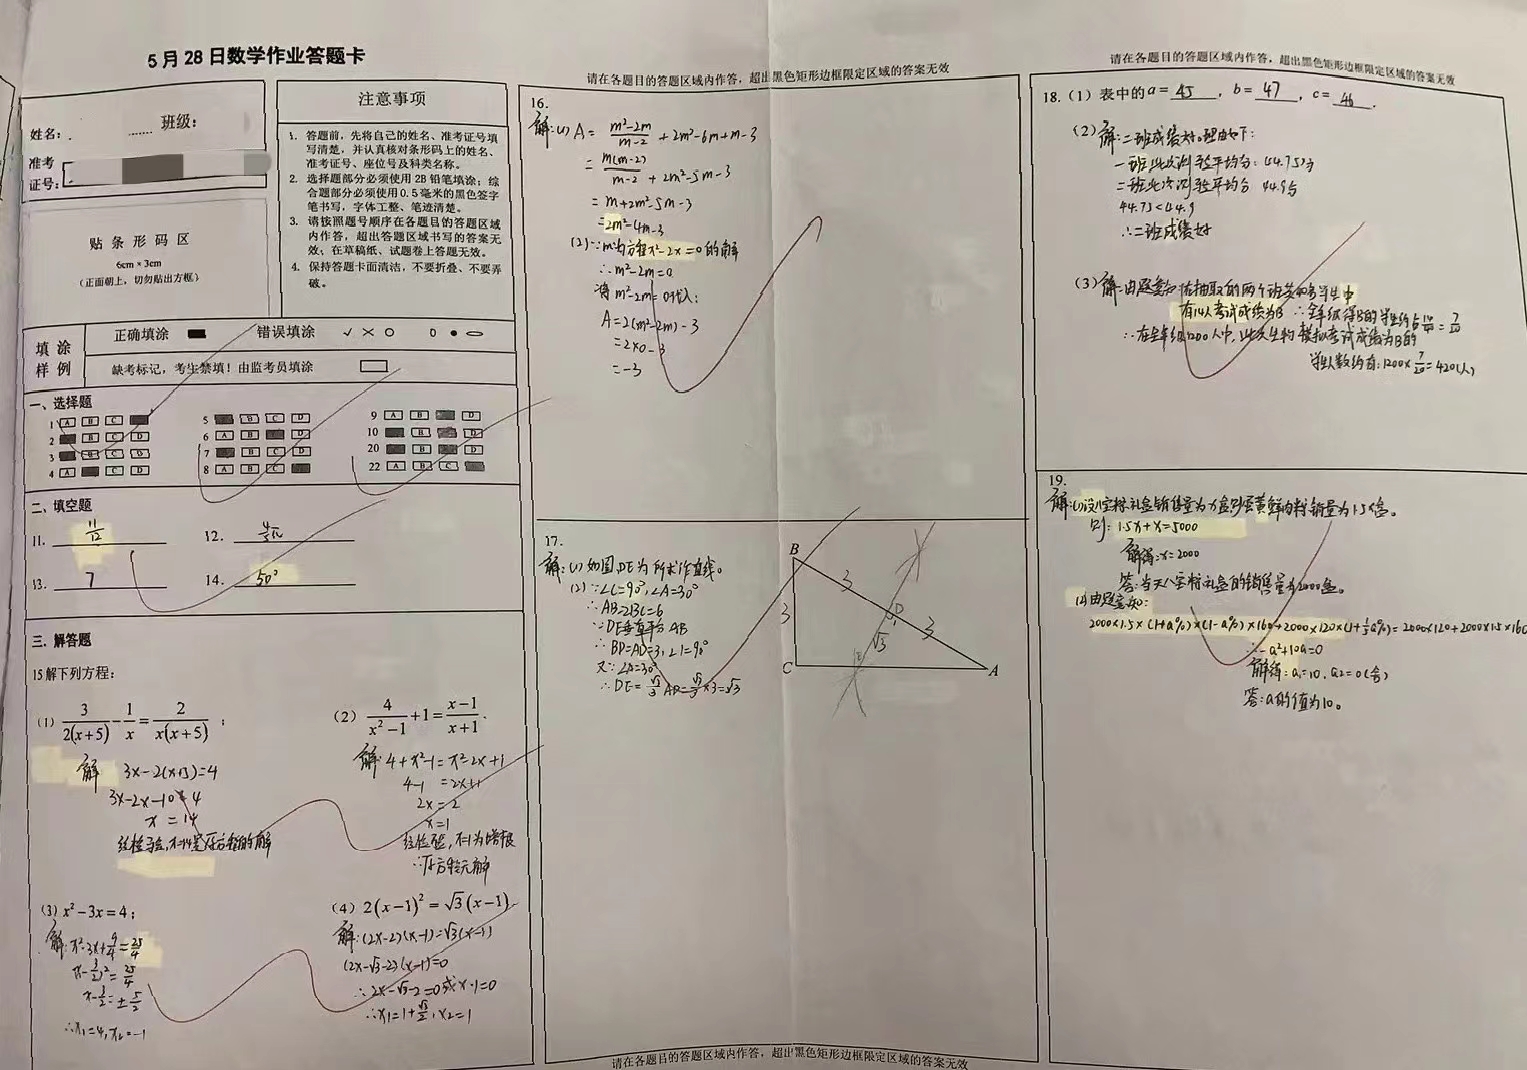 5月28日数学作业答题卡
姓名:
班级:
准考
证号:
贴条形码区
6cm×3cm
(正面朝上,切勿贴出方框)
注意事项
1. 答题前,先将自己的姓名、准考证号填
写清楚,并认真核对条形码上的姓名、
准考证号、座位号及科类名称。
2. 选择题部分必须使用2B铅笔填涂;综
合题部分必须使用0.5毫米的黑色签字
笔书写,字体工整、笔迹清楚。
3. 请按照题号顺序在各题目的答题区域
内作答,超出答题区域书写的答案无
效,在草稿纸、试题卷上答题无效。
4. 保持答题卡面清洁,不要折叠、不要弄
破。
填涂
样例
正确填涂
错误填涂
缺考标记,考生禁填!由监考员填涂
一、选择题
1 A B C
2 B C D
3 B C D
4 A C D
5 B C D
6 A B D
7 B C D
8 A B C
9 A B D
10 B D
20 B D
22 A B C
二、填空题
11. 11/12
12.
13. 7
14. 50°
三、解答题
15解下列方程:
(1) 3/2(x+5) - 1/x = 2/x(x+5) ;
解 3x-2(x+5)=4
3x-2x-10=4
x=14
经检验,x=14是原方程的解
(2) 4/x²-1 +1= x-1/x+1 .
解:4+x²-1=x²-2x+1
4-1 =2x+1
2x=2
x=1
经检验,x=1为增根
∴原方程无解
(3) x²-3x=4;
解:x²-3x+9/4=25/4
(x-3/2)²=25/4
x-3/2=±5/2
∴x₁=4,x₂=-1
(4) 2(x-1)²=√3(x-1)
解:(2x-2)(x-1)=√3(x-1)
(2x-√3-2)(x-1)=0
∴2x-√3-2=0或x-1=0
∴x₁=1+√3/2,x₂=1
请在各题目的答题区域内作答,超出黑色矩形边框限定区域的答案无效
16.
解:(1)A= m²-2m/m-2 +2m²-6m+m-3
= m(m-2)/m-2 +2m²-5m-3
=m+2m²-5m-3
=2m²-4m-3
(2)∵m为方程x²-2x=0的解
∴m²-2m=0
将m²-2m=0代入:
A=2(m²-2m)-3
=2×0-3
=-3
17.
解:(1)如图,DE为所求作直线。
(2)∵∠C=90°,∠A=30°
∴AB=2BC=6
∵DE垂直平分AB
∴BD=AD=3,∠1=90°
又∵∠A=30°
∴DE=√3/3AD=√3/3×3=√3
B
3
3
D
1
3
√3
E
C
A
请在各题目的答题区域内作答,超出黑色矩形边框限定区域的答案无效
请在各题目的答题区域内作答,超出黑色矩形边框限定区域的答案无效
18.(1)表中的a= 45 ,b= 47 ,c= 46 .
(2)解:二班成绩好.理由如下:
一班此次测验平均分:44.75分
二班此次测验平均分 44.9分
44.75<44.9
∴二班成绩好
(3)解:由题意知 抽取的两个班共40名学生中
有14人考试成绩为B ∴全年级得B的学生约占14/40=7/20
∴在全年级1200人中,此次生物模拟考试成绩为B的
学生人数约有:1200×7/20=420(人)
19.
解:(1)设八宝粽礼盒销售量为x盒则蛋黄鲜肉粽销量为1.5x盒。
则:1.5x+x=5000
解得:x=2000
答:当天八宝粽礼盒的销售量为2000盒。
(2)由题意知:
2000×1.5×(1+a%)×(1-a%)×160+2000×120×(1+1/5a%)=2000×120+2000×1.5×160
∴-a²+10a=0
解得:a₁=10,a₂=0(舍)
答:a的值为10。